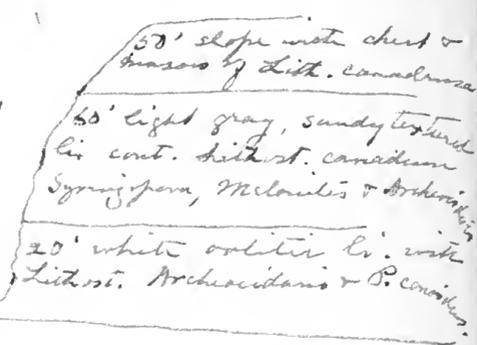 50' slope with chert &
masses of Lith. canadense
60' light gray, sandy textured
li. cont. Lithost. canadense
Syringopora, Melonites & Archeocidaris
20' white oolitic li. with
Lithost. Archeocidaris & P. conoideus.